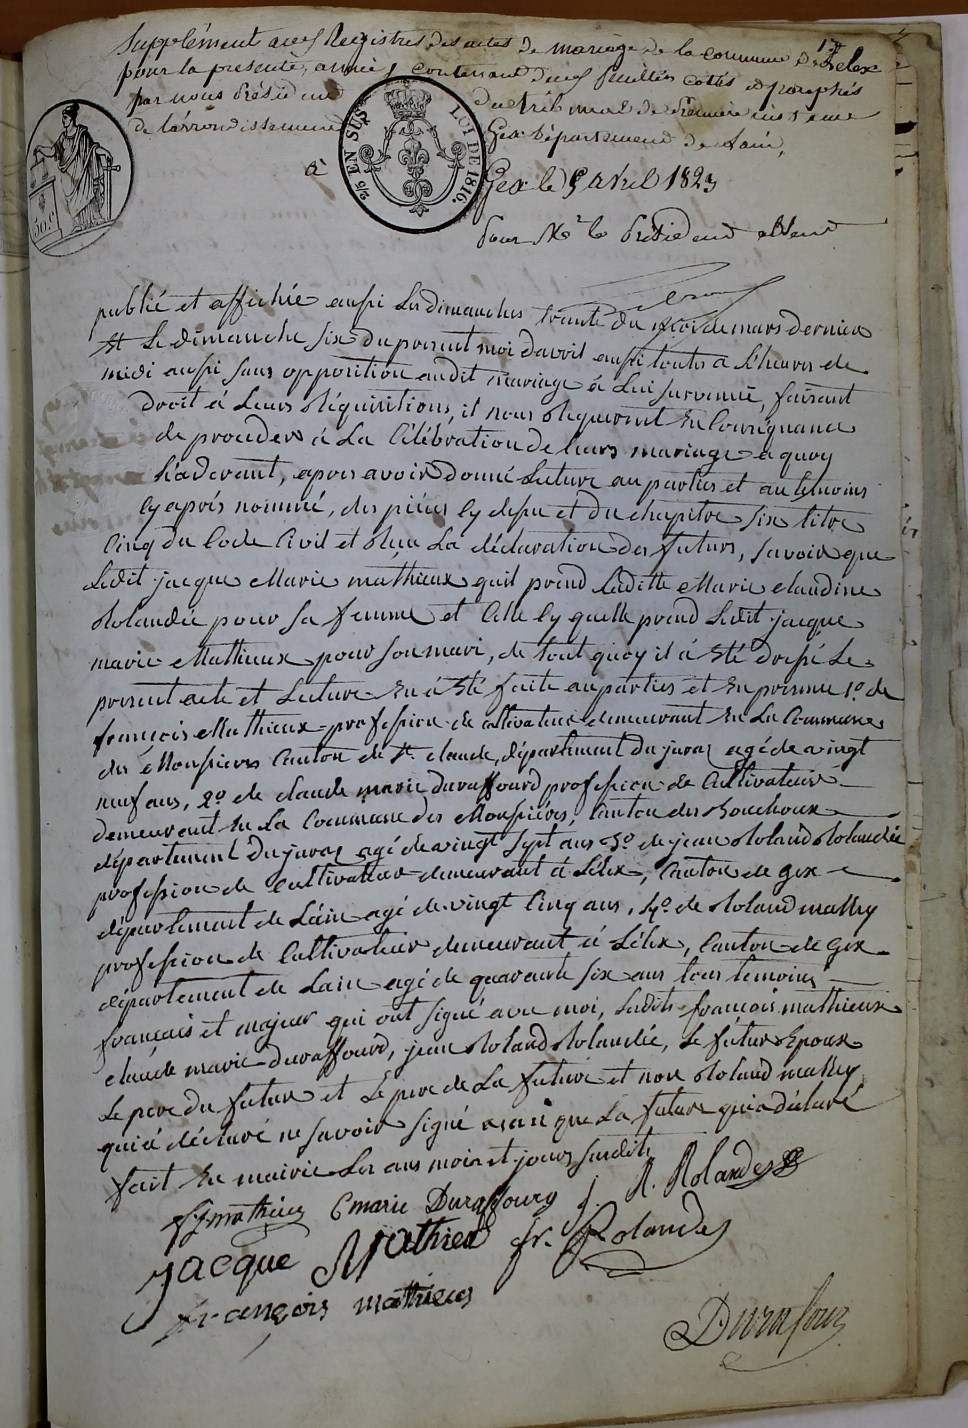 Supplément aux Registres des actes de mariage de la commune de Lelex
pour la presente année, contenant deux feuillets cotés et paraphés
par nous Président du tribunal de Premiere instance
de l'arrondissement Gex Département de l'ain,
à Gex le 5 avril 1823
Pour Mr le Président absent
2/5 EN SUS
LOI DE 1816.
50.c
publié et affichée aussi les dimanches trante du moi de mars dernier
et le dimanche six du present moi davril aussi toutes a l'heures de
midi aussi sans opposition audit mariage à lui survenue, faisant
droit à leurs réquisitions, il nous requeront en Consequance
de proceders à la Célébration de leurs mariage a quoy
hadérant, apres avoir donné lecture au parties et au temoins
Cy après nommé, des pièces Cy dessu et du chapitre six titre
Cinq du Code Civil et reçu la déclaration des futurs, savoir que
Ledit jacque Marie mathieux quil prend Laditte Marie claudine
Rolandée pour sa femme et Elle Cy quelle prend Ledit jacque
marie Mathieux pour son mari, de tout quoy il à été dressé le
present acte et lecture en à été faite au parties et en presence 1º de
françois Mathieux profession de cultivateur demeurant en la Commune
des Moussieres Canton de St. claude, département du jurat agé de vingt
neuf ans, 2º de claude marie duraffourd profession de Cultivateur
demeurant en la Commune des Moussiéres, Canton des Bouchoux
département du jurat agé de vingt sept ans 3º de jean Roland Rolandée
profession de Cultivateur demeurant à Lélex, Canton de gex
département de Lain agé de vingt Cinq ans, 4º. de Roland mathey
profession de Cultivateur demeurant à Lélex, Canton de gex
département de Lain agé de quarante six ans tous temoins
français et majeur qui ont signé avec moi, Ledits françois mathieux
claude marie duraffourd, jean Roland Rolandée, Le futur Epoux
Le pere du futur et Le pere de La future et non Roland mathey
qui à déclaré ne savoir signé ainsi que La future qui a déclaré
fait en mairie Les ans mois et jours susdits
fs mathieux C marie Duraffourg j. R. Rolandez
Jacque Mathieu fr. Rolandez
françois mathieus
Durafour